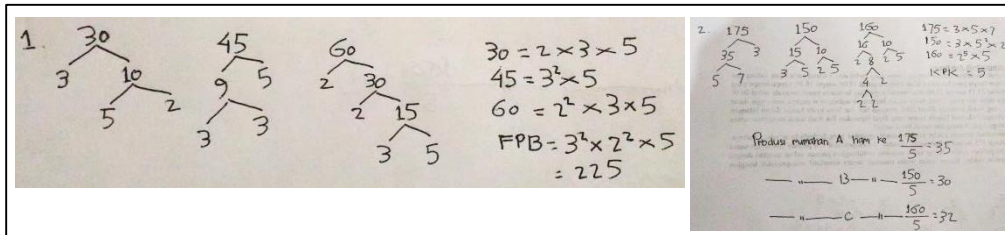 1. 30 45 60
3 10 9 5 2 30
5 2 3 3 2 15
3 5
30 = 2 × 3 × 5
45 = 3² × 5
60 = 2² × 3 × 5
FPB = 3² × 2² × 5
= 225
2. 175 150 160
35 3 15 10 16 10
5 7 3 5 2 5 2 8 2 5
4 2
2 2
175 = 3 × 5 × 7
150 = 3 × 5² × 2
160 = 2⁵ × 5
KPK = 5
Produksi rumahan A hari ke 175/5 = 35
— " — B — " — 150/5 = 30
— " — C — " — 160/5 = 32